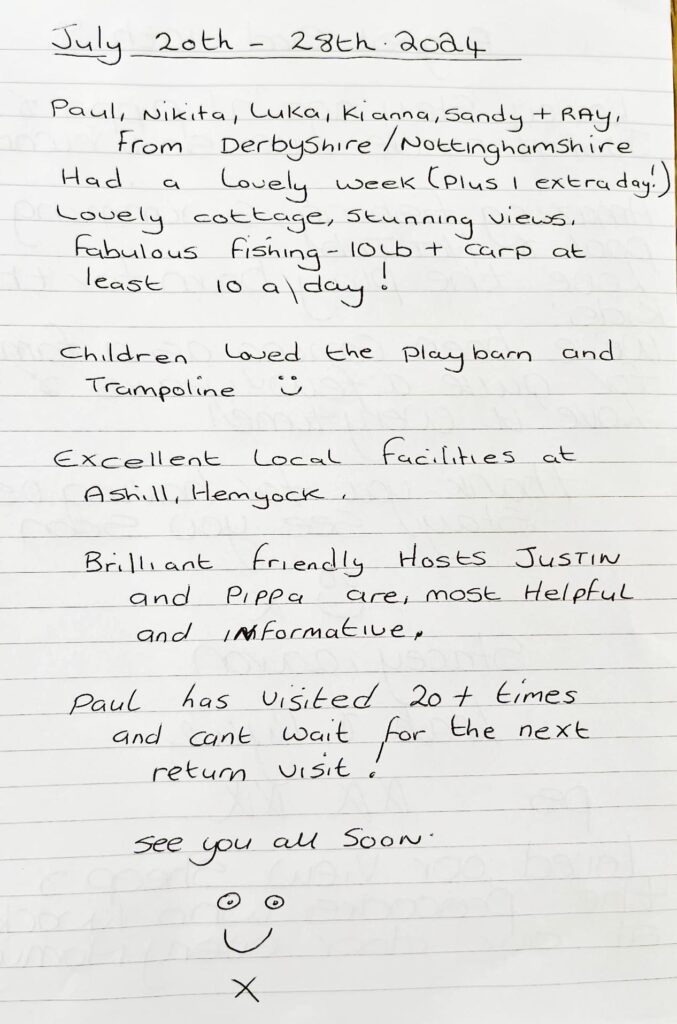 July 20th - 28th. 2024
Paul, Nikita, Luka, Kianna, Sandy + RAY,
From Derbyshire / Nottinghamshire
Had a Lovely week (Plus 1 extra day!)
Lovely cottage, Stunning views.
Fabulous fishing - 10lb + carp at
least 10 a\day!
Children Loved the playbarn and
Trampoline
Excellent Local facilities at
Ashill, Hemyock.
Brilliant friendly Hosts JUSTIN
and Pippa are, most Helpful
and informative.
Paul has visited 20+ times
and cant wait for the next
return visit!
See you all Soon.
X